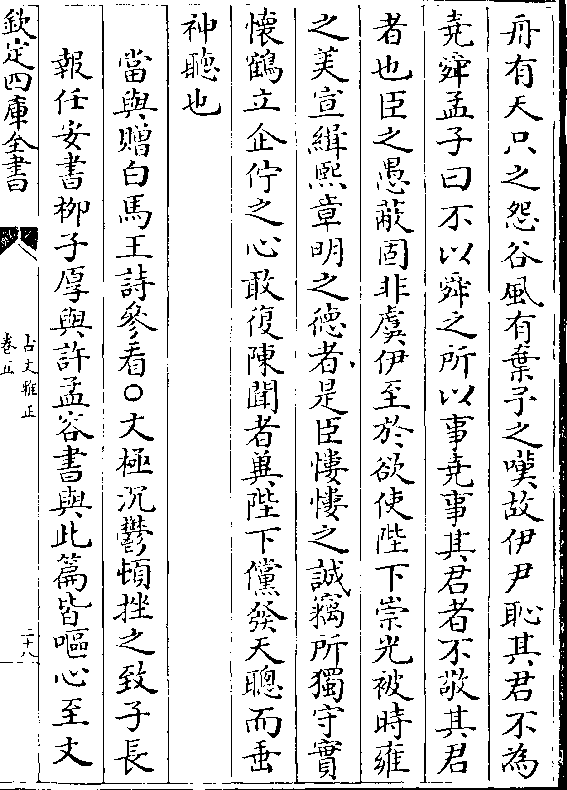 舟有天只之怨谷風有棄予之嘆故伊尹恥其君不為
堯舜孟子曰不以舜之所以事堯事其君者不敬其君
者也臣之愚蔽固非虞伊至於欲使陛下崇光被時雍
之美宣緝熙章明之德者是臣慺慺之誠竊所獨守實
懷鶴立企佇之心敢復陳聞者冀陛下儻發天聰而垂
神聽也
當與贈白馬王詩參看○文極沉鬱頓挫之致子長
報任安書柳子厚與許孟容書與此篇皆嘔心至文
欽定四庫全書
古文雅正
卷五
二十八